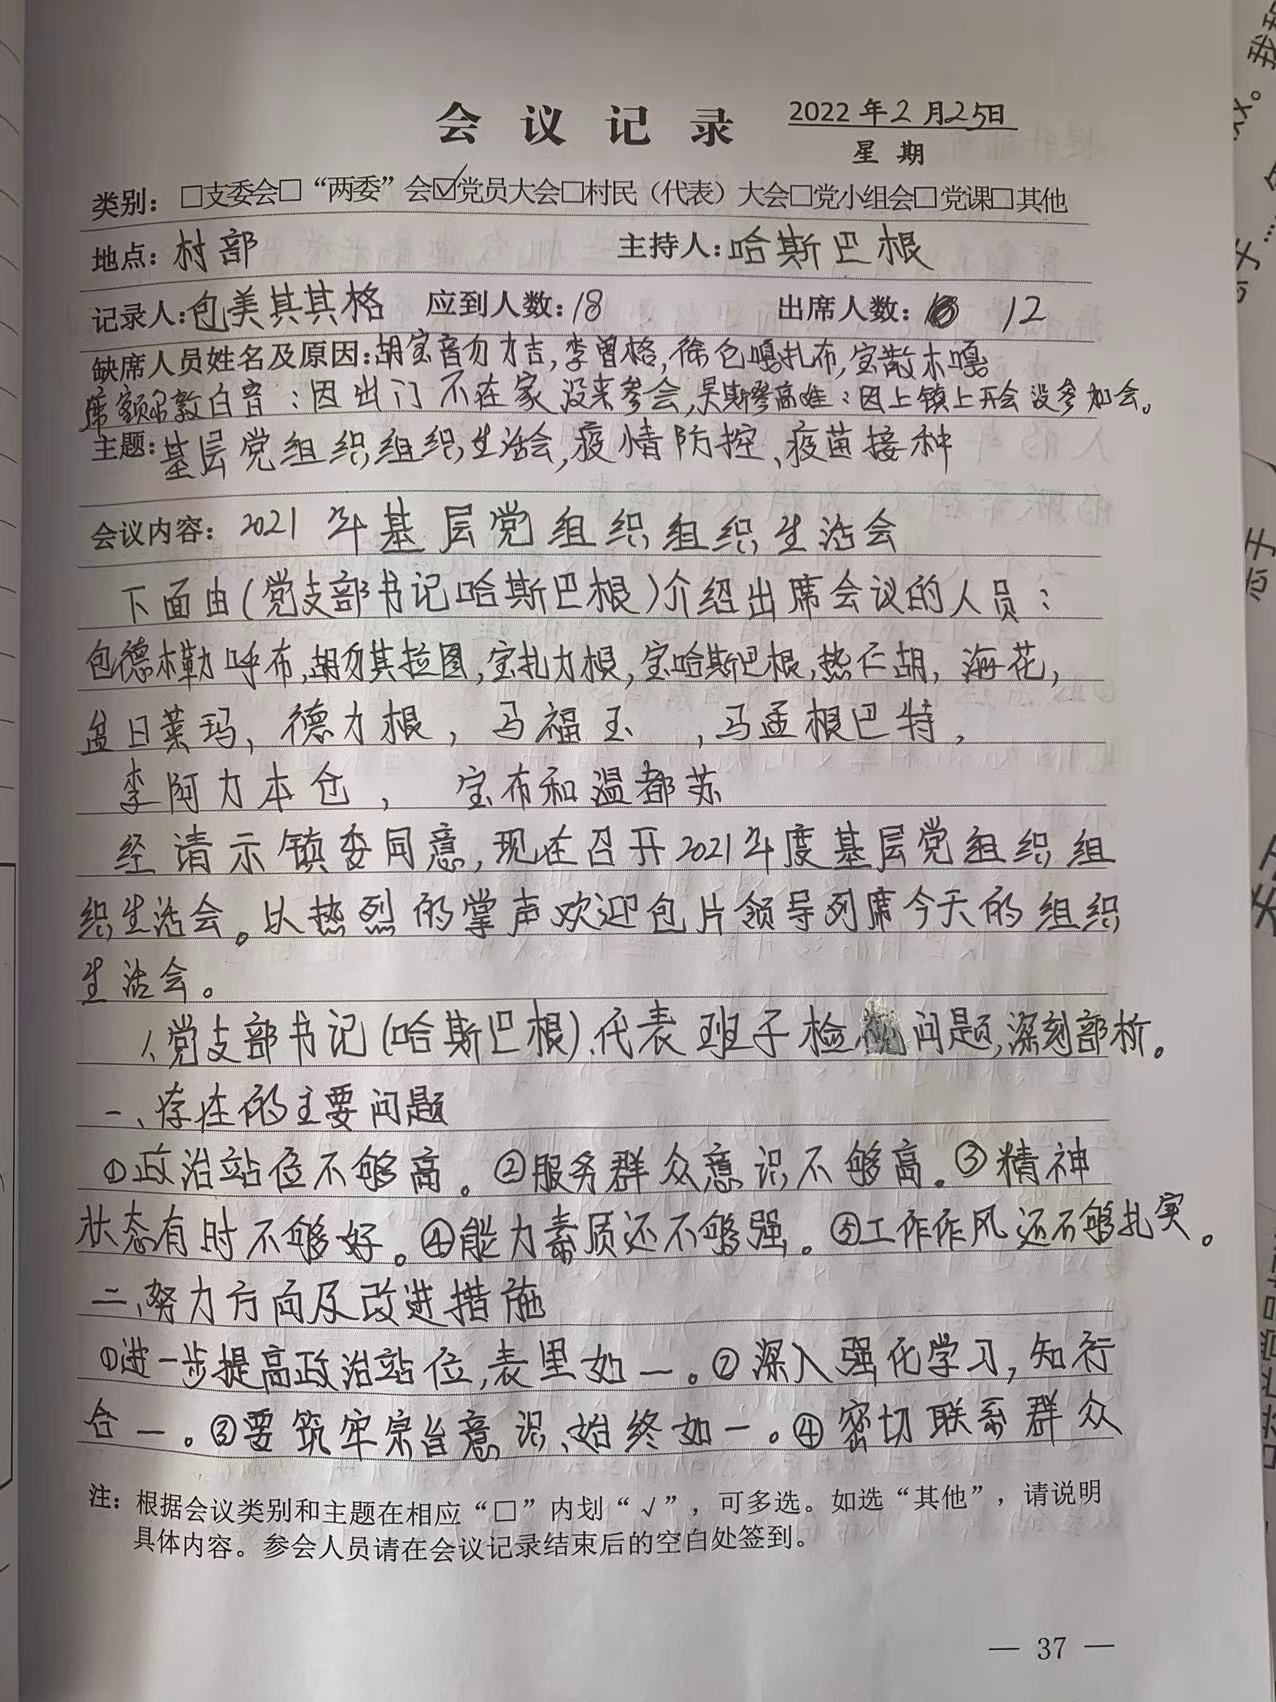 会议记录 2022年2月25日
星期
类别：□支委会□“两委”会☑党员大会□村民（代表）大会□党小组会□党课□其他
地点：村部 主持人：哈斯巴根
记录人：包美其其格 应到人数：18 出席人数：12
缺席人员姓名及原因：胡宝音勿力吉，李曾格，徐包嘎扎布，宝散木嘎
席额尔敦白音：因出门不在家没来参会，：因上镇上开会没参加会。
主题：基层党组织组织生活会，疫情防控、疫苗接种
会议内容：2021年基层党组织组织生活会
下面由（党支部书记哈斯巴根）介绍出席会议的人员：
包德木勒呼布，胡勿其拉图，宝扎力根，宝哈斯巴根，热仁胡，海花，
孟日莱玛，德力根，马福玉，马孟根巴特，
李阿力本仓，宝布和温都苏
经请示镇委同意，现在召开2021年度基层党组织组
织生活会。以热烈的掌声欢迎包片领导列席今天的组织
生活会。
1、党支部书记（哈斯巴根）、代表班子检视问题，深刻部析。
一、存在的主要问题
①政治站位不够高。②服务群众意识不够高。③精神
状态有时不够好。④能力素质还不够强。⑤工作作风还不够扎实。
二、努力方向及改进措施
①进一步提高政治站位，表里如一。②深入强化学习，知行
合一。③要筑牢宗旨意识、始终如一。④密切联系群众
注：根据会议类别和主题在相应“□”内划“√”，可多选。如选“其他”，请说明
具体内容。参会人员请在会议记录结束后的空白处签到。
— 37 —